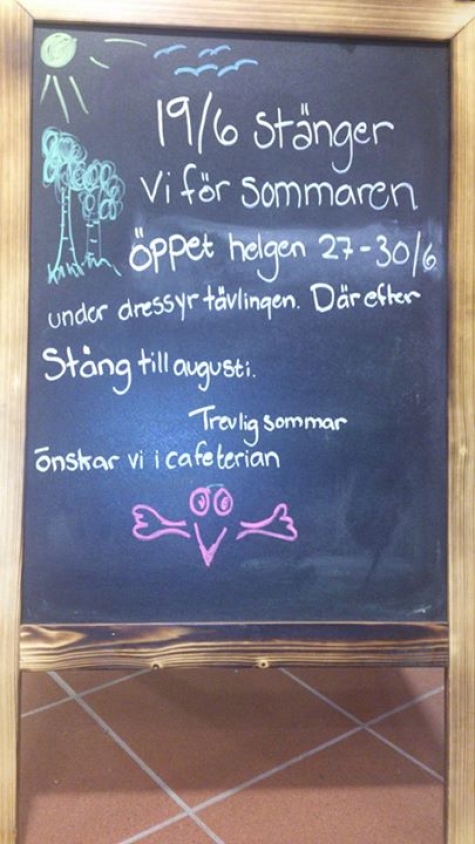 19/6 stänger
vi för sommaren
öppet helgen 27-30/6
under dressyrtävlingen. Därefter
Stäng till augusti.
Trevlig sommar
önskar vi i cafeterian